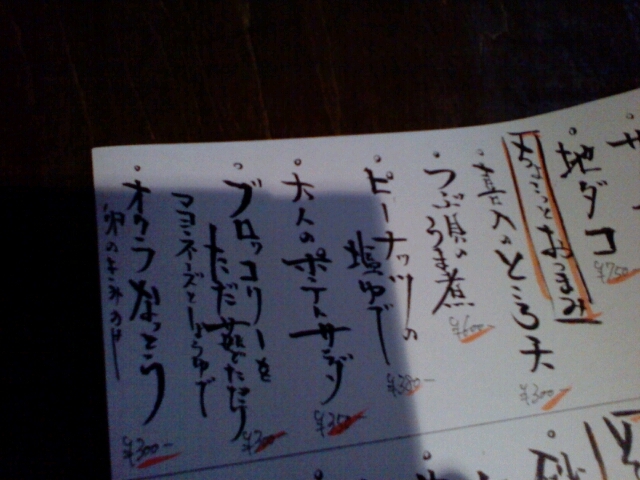 地ダコ
¥750
ちょこっとおつまみ
入のところ天
¥300-
つぶ貝のうま煮
¥600-
ピーナッツの
塩ゆで
¥380-
大人のポテトサラダ
¥350
ブロッコリーを
ただ茹でただけ
マヨネーズとしょうゆで
¥300
オクラなっとう
卵のきみのけ
¥300-